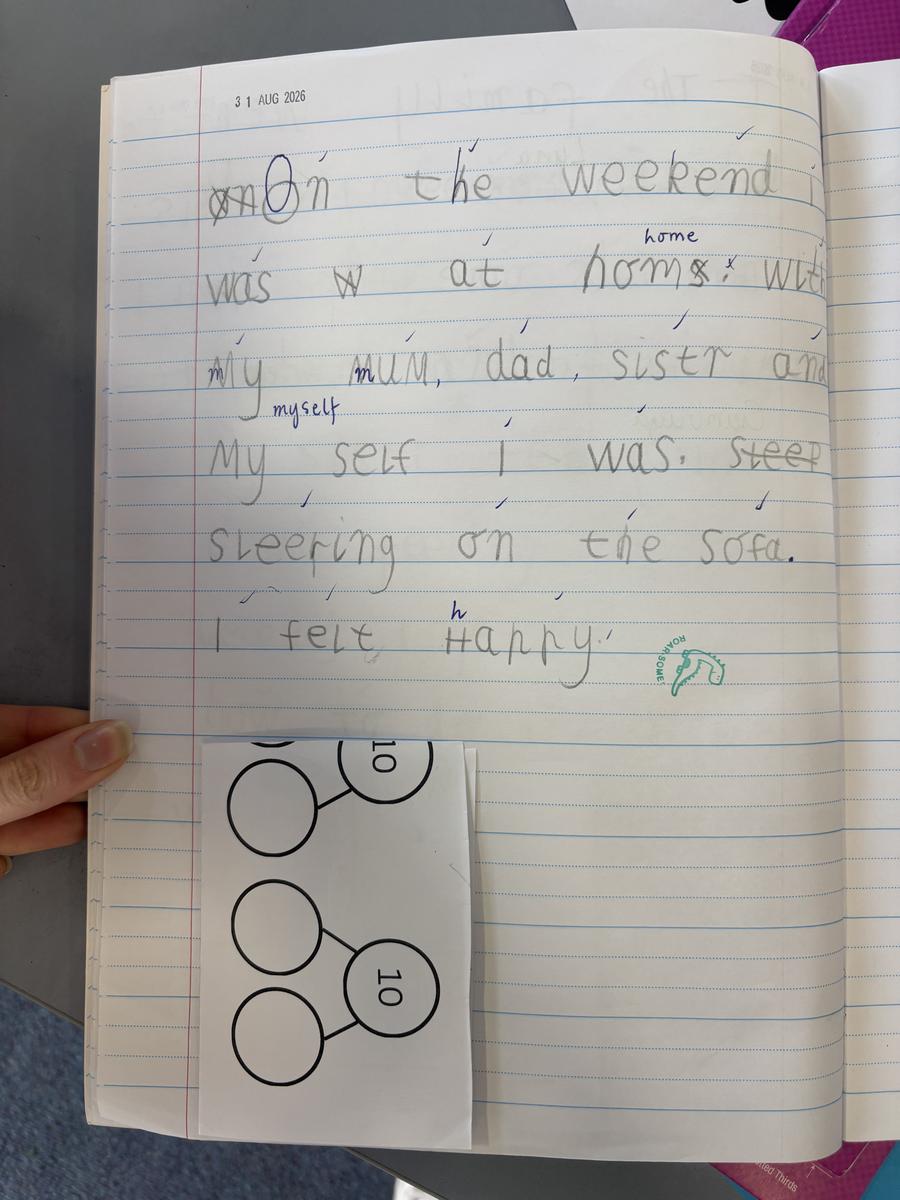 31 AUG 2026
On the weekend i
home
was w at homs. with
My mUM, dad, sistr and
myself
My self I was. sleep
sleeping on the sofa.
h
I felt Happy.
ROARSOME!
10
10